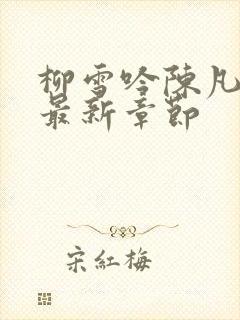 柳雪吟陈凡
最新章節
宋紅梅